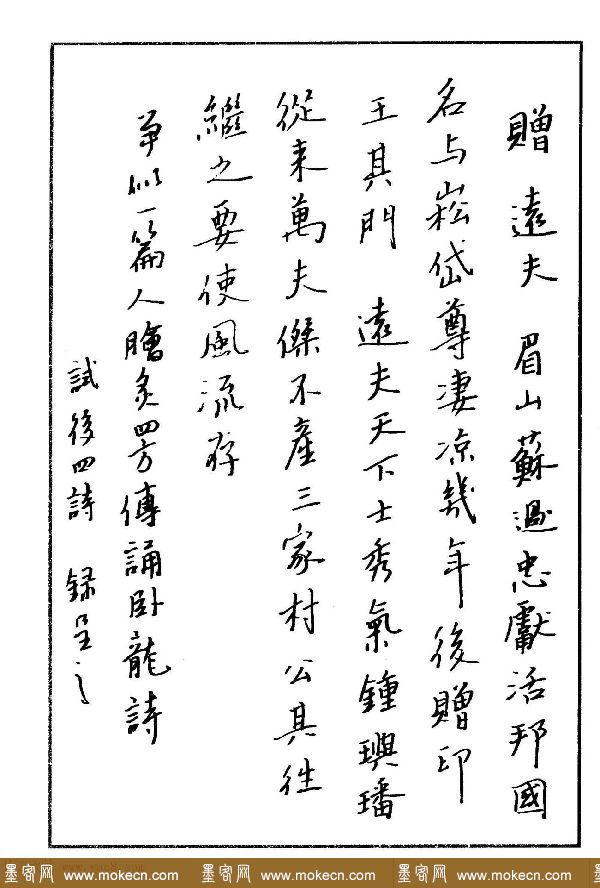 贈 遠夫 眉山蘇過忠獻活邦國
名与崧岱尊淒凉幾年後贈印
王其門 遠夫天下士秀氣鍾璵璠
從来萬夫傑不產三家村公其往
繼之要使風流存
争似一篇人膾炙四方傳誦卧龍詩
試後四詩 録呈
墨客网 www.mokecn.com 墨客网 www.mokecn.com 墨客网 www.mokecn.com